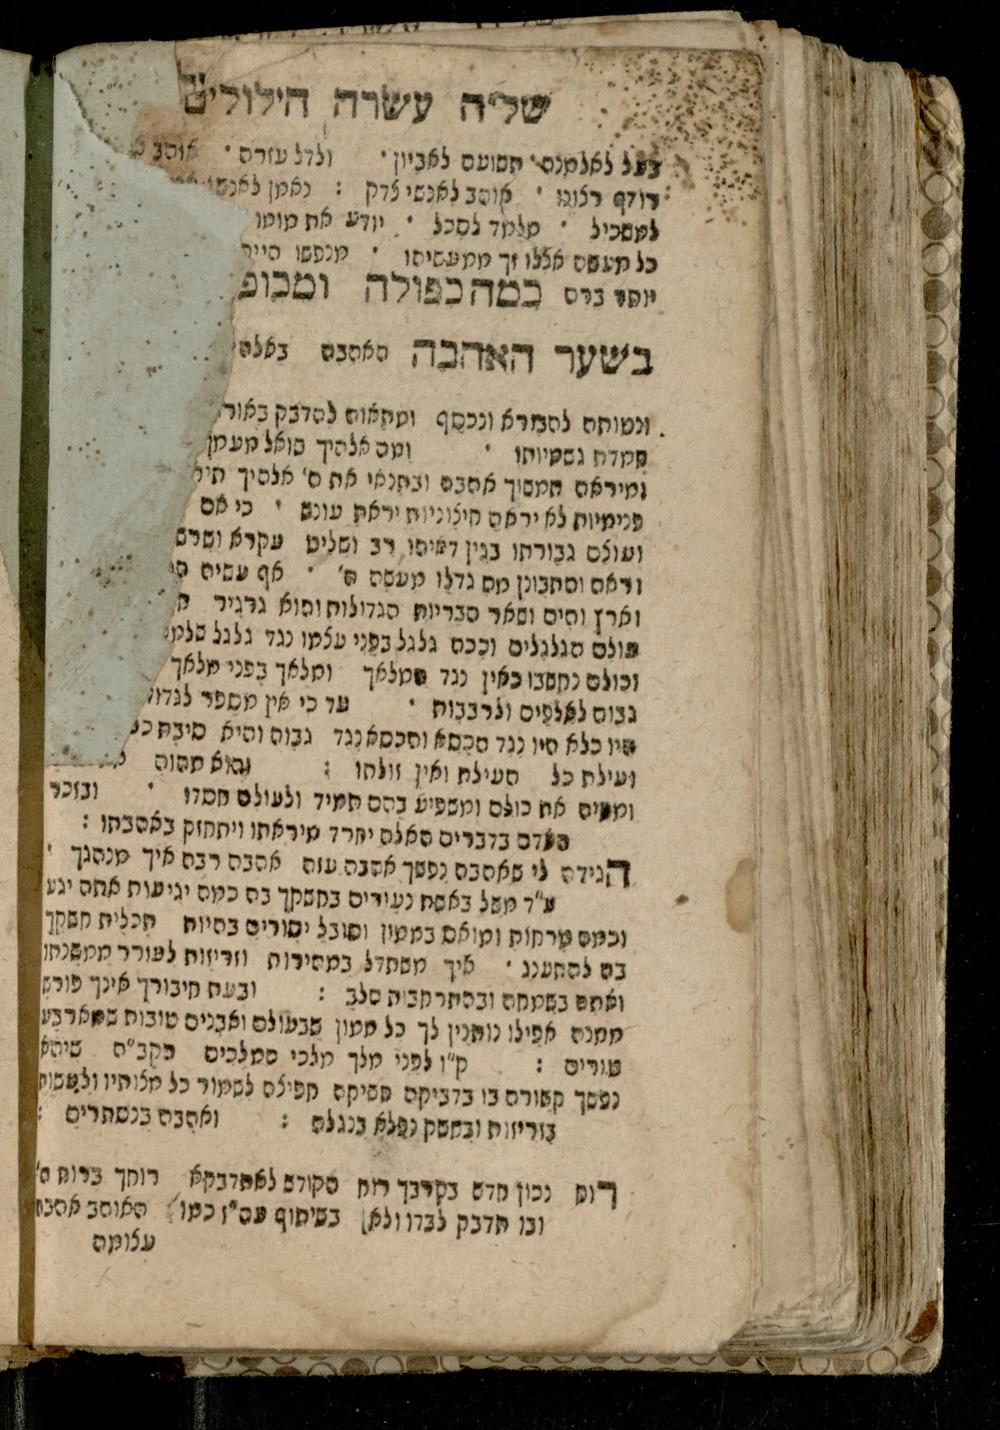 של״ה עשרה הילולים
בעל לאלמנה · תשועה לאביון · ולדל עזרה · אוהב
רודף רצונו · אוהב לאנשי צדק : נאמן
למשכיל · מלמד לסכל · יודע את מומו
כל מעשה אצלו זך ממעשיהו · מנפשו
יותר ברה כמה כפולה ומכופ
בשער האהבה האהבה
ונמוחה להבורא ונכסף ומתאוה להדבק באור
מדת גשמיותו · ומה אלהיך שואל מעמך
ומיראה תמשוך אהבה ובתנאי את ה׳ אלהיך
פנימיות לא יראה חיצוניות יראת עונש · כי אם
ועולם גבורתו בגין דאיהו רב ושליט עקרא ושרש
וראה והתבונן מה גדלו מעשה ה׳ · אף עשיה
וארץ והים ושאר הבריות הגדולות והוא גרגיר
עולם הגלגלים וככה גלגל בפני עצמו נגד גלגל
וכולם נחשבו כאין נגד המלאך ומלאך בפני מלאך
גבוה לאלפים ולרבבות · עד כי אין מספר
היו כלא היו נגד הכסא והכסא נגד גבוה והיא סיבת
ועילת כל העילות ואין זולתו : והוא מהוה
ומחיה את כולם ומשפיע בהם תמיד ולעולם חסדו · ובזכר
האדם בדברים האלה יחרד מיראתו ויתחזק באהבתו :
הגידה לי שאהבה נפשך אהבה עזה אהבה רבה איך מנהגך ·
ע״ד משל באשת נעורים בחשקך בה כמה יגיעות אתה יגע
וכמה טרחות ומואס בממון וסובל יסורים בהיות תכלית חשקך
בה להתענג · איך משתדל במהירות וזריזות לעורר ממשנתו
ואתה בשמחה ובהתרחבות הלב : ובעת חיבורך אינך פורש
ממנה אפילו נותנין לך כל ממון שבעולם ואבנים טובות שארבע
טורים : ק״ו לפני מלך מלכי המלכים הקב״ה שיהא
נפשך קשורה בו בדביקה חשיקה חפיצה לשמור כל מצותיו ולעשות
בזריזות ובחשק נפלא בנגלה : ואהבה בנסתרים :
רוח נכון חדש בקרבך רוח הקודם לאתדבקא רוחך ברוח ה׳
ובו תדבק לבדו ולא בשיתוף עה״ז כמו האוהב אהבת
עצומה